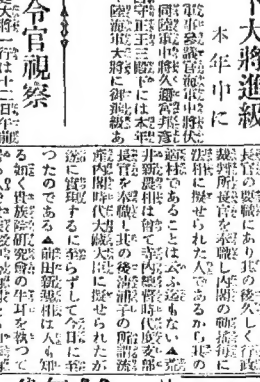 下大將進級
本年中に
軍事參議官海軍中將伏
同陸軍中將久邇宮邦彦
王同正王三殿下には本年
陸海軍大將に御進級あ
令官視察
大將一行は十二日午前
長官の要職にあり其の後久しく行政
裁判所長官を奉職し内閣の動搖毎に
法相に擬せられた人であるから其の
適材であることは云ふ迄もない▲荒
井新農相は曾て寺内總督時代度支部
長官を奉職し其の後清浦子の所謂流
産内閣時代大藏大臣に擬せられたが
遂に實現するに至らずして今日に至
つたのである▲前田新遞相は人も知
る如く貴族院研究會の牛耳を執つて